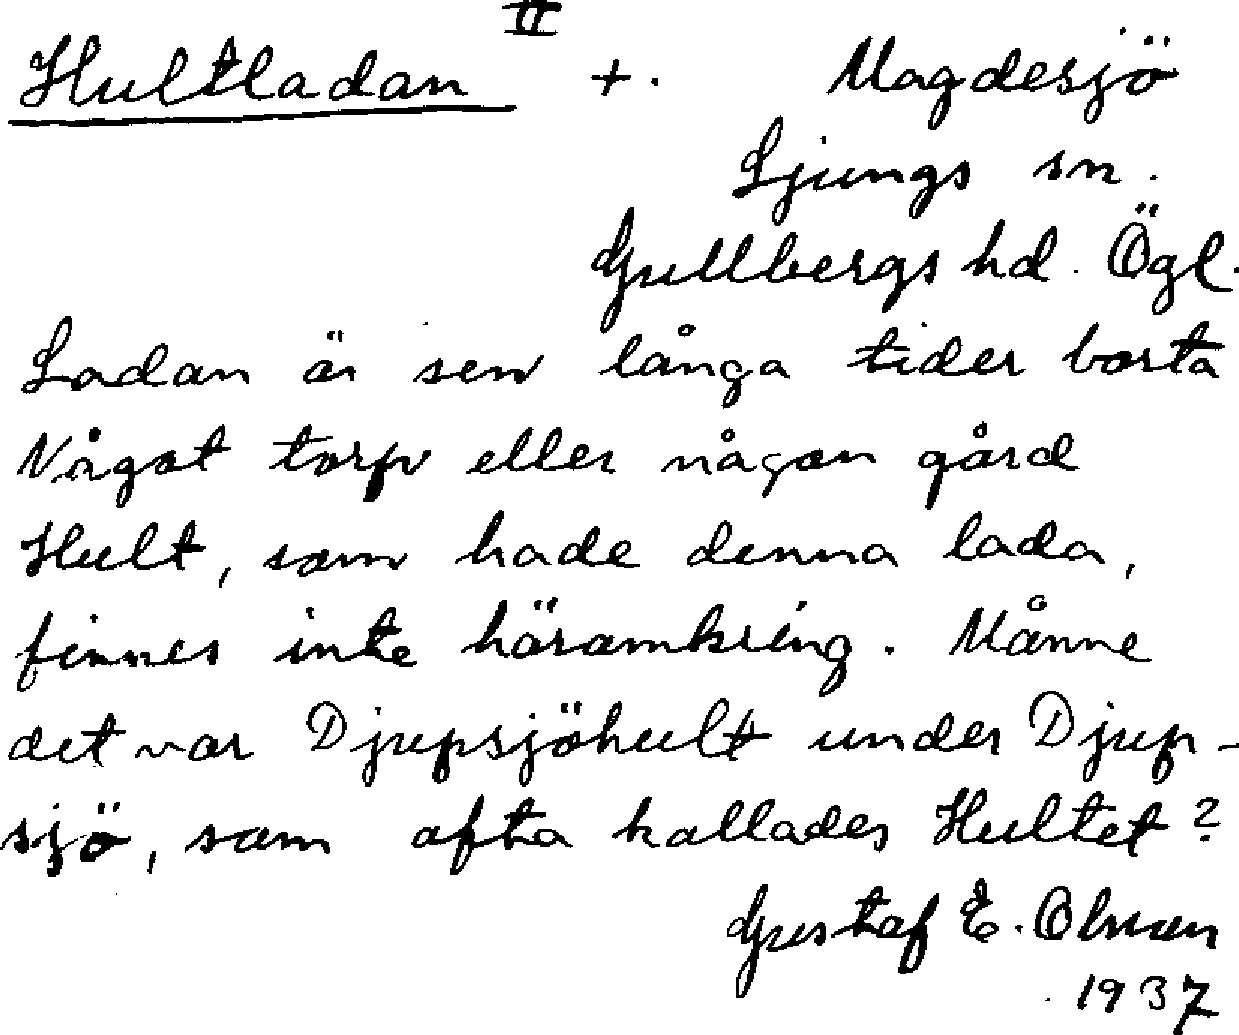 Hultladan II +. Magdesjö
Ljungs sn.
Gullbergs hd. Ögl.
Ladan är sen långa tider borta
Något torp eller någon gård
Hult, som hade denna lada,
finnes inte häromkring. Månne
det var Djupsjöhult under Djup-
sjö, som ofta kallades Hultet?
Gustaf E. Olman
1937